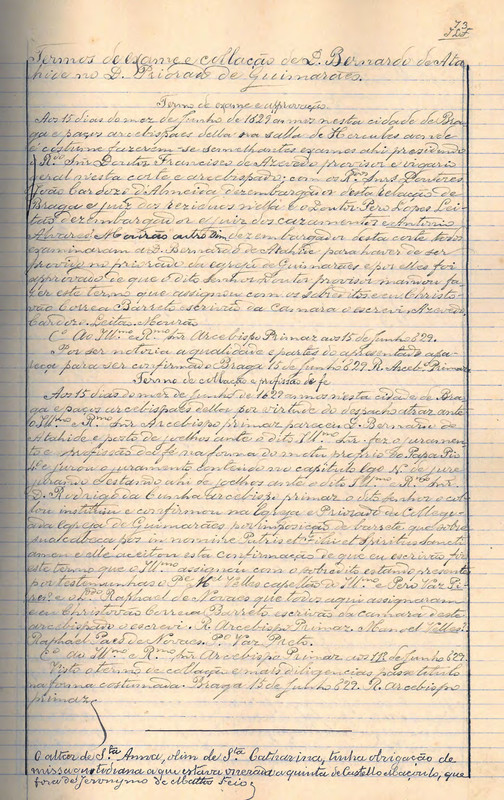 73
Termos de exame e collação de D. Bernardo de Ata
hide no D. Priorado de Guimarães.
Termo de exame e approvação
Aos 15 dias do mez de Junho de 1629 annos nesta cidade de Bra
ga e paços arcebispaes della na salla de Hercules aonde
é costume fazerem-se semelhantes exames ahi presidindo
o Rdo Snr Doutor Francisco de Azevedo provisor e vigario
geral nesta corte e arcebispado; com os Rdos Snrs Doutores
João Cardozo d'Almeida dezembargador desta relação de
Braga e juiz dos reziduos nella e o Doutor Pero Lopes Lei
tão dezembargador e juiz dos cazamentos e Antonio
Alvares Mourão outro sim dezembargador desta corte todos
examinaram a D. Bernardo d'Atahide para haver de ser
provido no priorado da egreja de Guimarães e por elles foi
approvado de que o dito Senhor Doutor provisor mandou fa
zer este termo que assignou com os sobreditos e eu Christo
vão Correa Barreto escrivão da camara o escrevi. Azevedo
Cardozo. Leitão. Mourão.
Co Ao Illmo e Rmo Snr Arcebispo Primaz aos 15 de Junho 629.
Por ser notoria a qualidade e partes do apresentado apa
reça para ser confirmado Braga 15 de Junho 629. R. Arcebo Primaz
Termo de collação e profissão de fé
Aos 15 dias do mez de Junho de 1629 annos nesta cidade de Bra
ga e paços arcebispaes della por virtude do despacho atraz ante
o Illmo e Rmo Snr Arcebispo primaz pareceu D. Bernardo de
Atahide e posto de joelhos ante o dito Illmo Snr. fez o juramen
to e profissão de fé na forma do motu proprio do Papa Pio
4º e jurou o juramento contendo no capitulo Ego N. de jure
jurando e estando ahi de joelhos ante o dito Illmo e Rmo Snr.
D. Rodrigo da Cunha Arcebispo primaz o dito Senhor o col
lou instituiu e confirmou na Egreja e Priorado da Collegi
ada Egreja de Guimarães por imposição de barrete que sobre
sua cabeça poz in nomine Patris et Filii et Spiritus Sancti
amen e elle aceitou esta confirmação de que eu escrivão fiz
este termo que o Illmo assignou com o sobredito estando presente
por testemunhas o Pe Mel Velles capellão do Illmo e Pero Vaz Pi
res e o Ldo Raphael de Novaes que todos aqui assignaram
e eu Christovão Correa Barreto escrivão da camara deste
arcebispado o escrevi. R. Arcebispo Primaz. Manoel Velles.
Raphael Paes de Novaes. Po Vaz Preto.
Co Ao Illmo e Rmo Snr Arcebispo Primaz aos 15 de Junho 629.
Visto o termo de collação e mais diligencias passe titulo
na forma costumada. Braga 15 de Junho 629. R. Arcebispo
primaz
O altar de Sta Anna, olim de Sta Catharina, tinha obrigação de
missa quotidiana a que estava onerada a quinta de Castello Maçorlo, que
fora de Jeronymo de Mattos Feio.